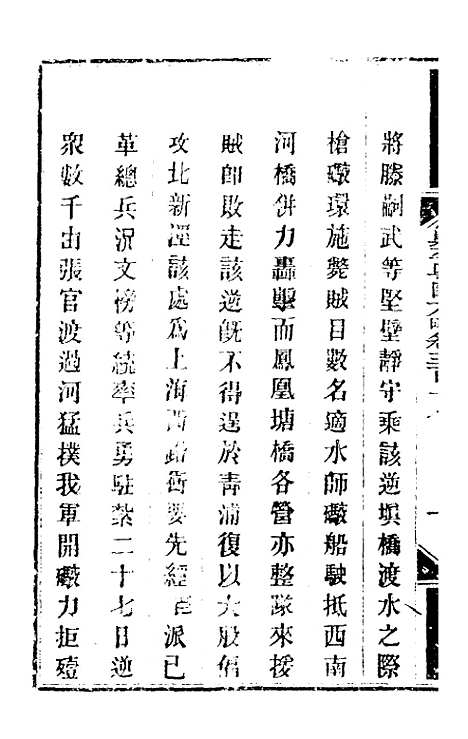 將滕嗣武等堅壁靜守乘該逆填橋渡水之際
槍礮環施斃賊目數名適水師礮船駛抵西南
河橋併力轟擊而鳳凰塘橋各營亦整隊來援
賊卽敗走該逆旣不得逞於靑浦復以大股
攻北新涇該處爲上海西路衝要先經派已
革總兵況文榜等統率兵勇駐紮二十七日逆
眾數千由張官渡過河猛撲我軍開礮力拒殪